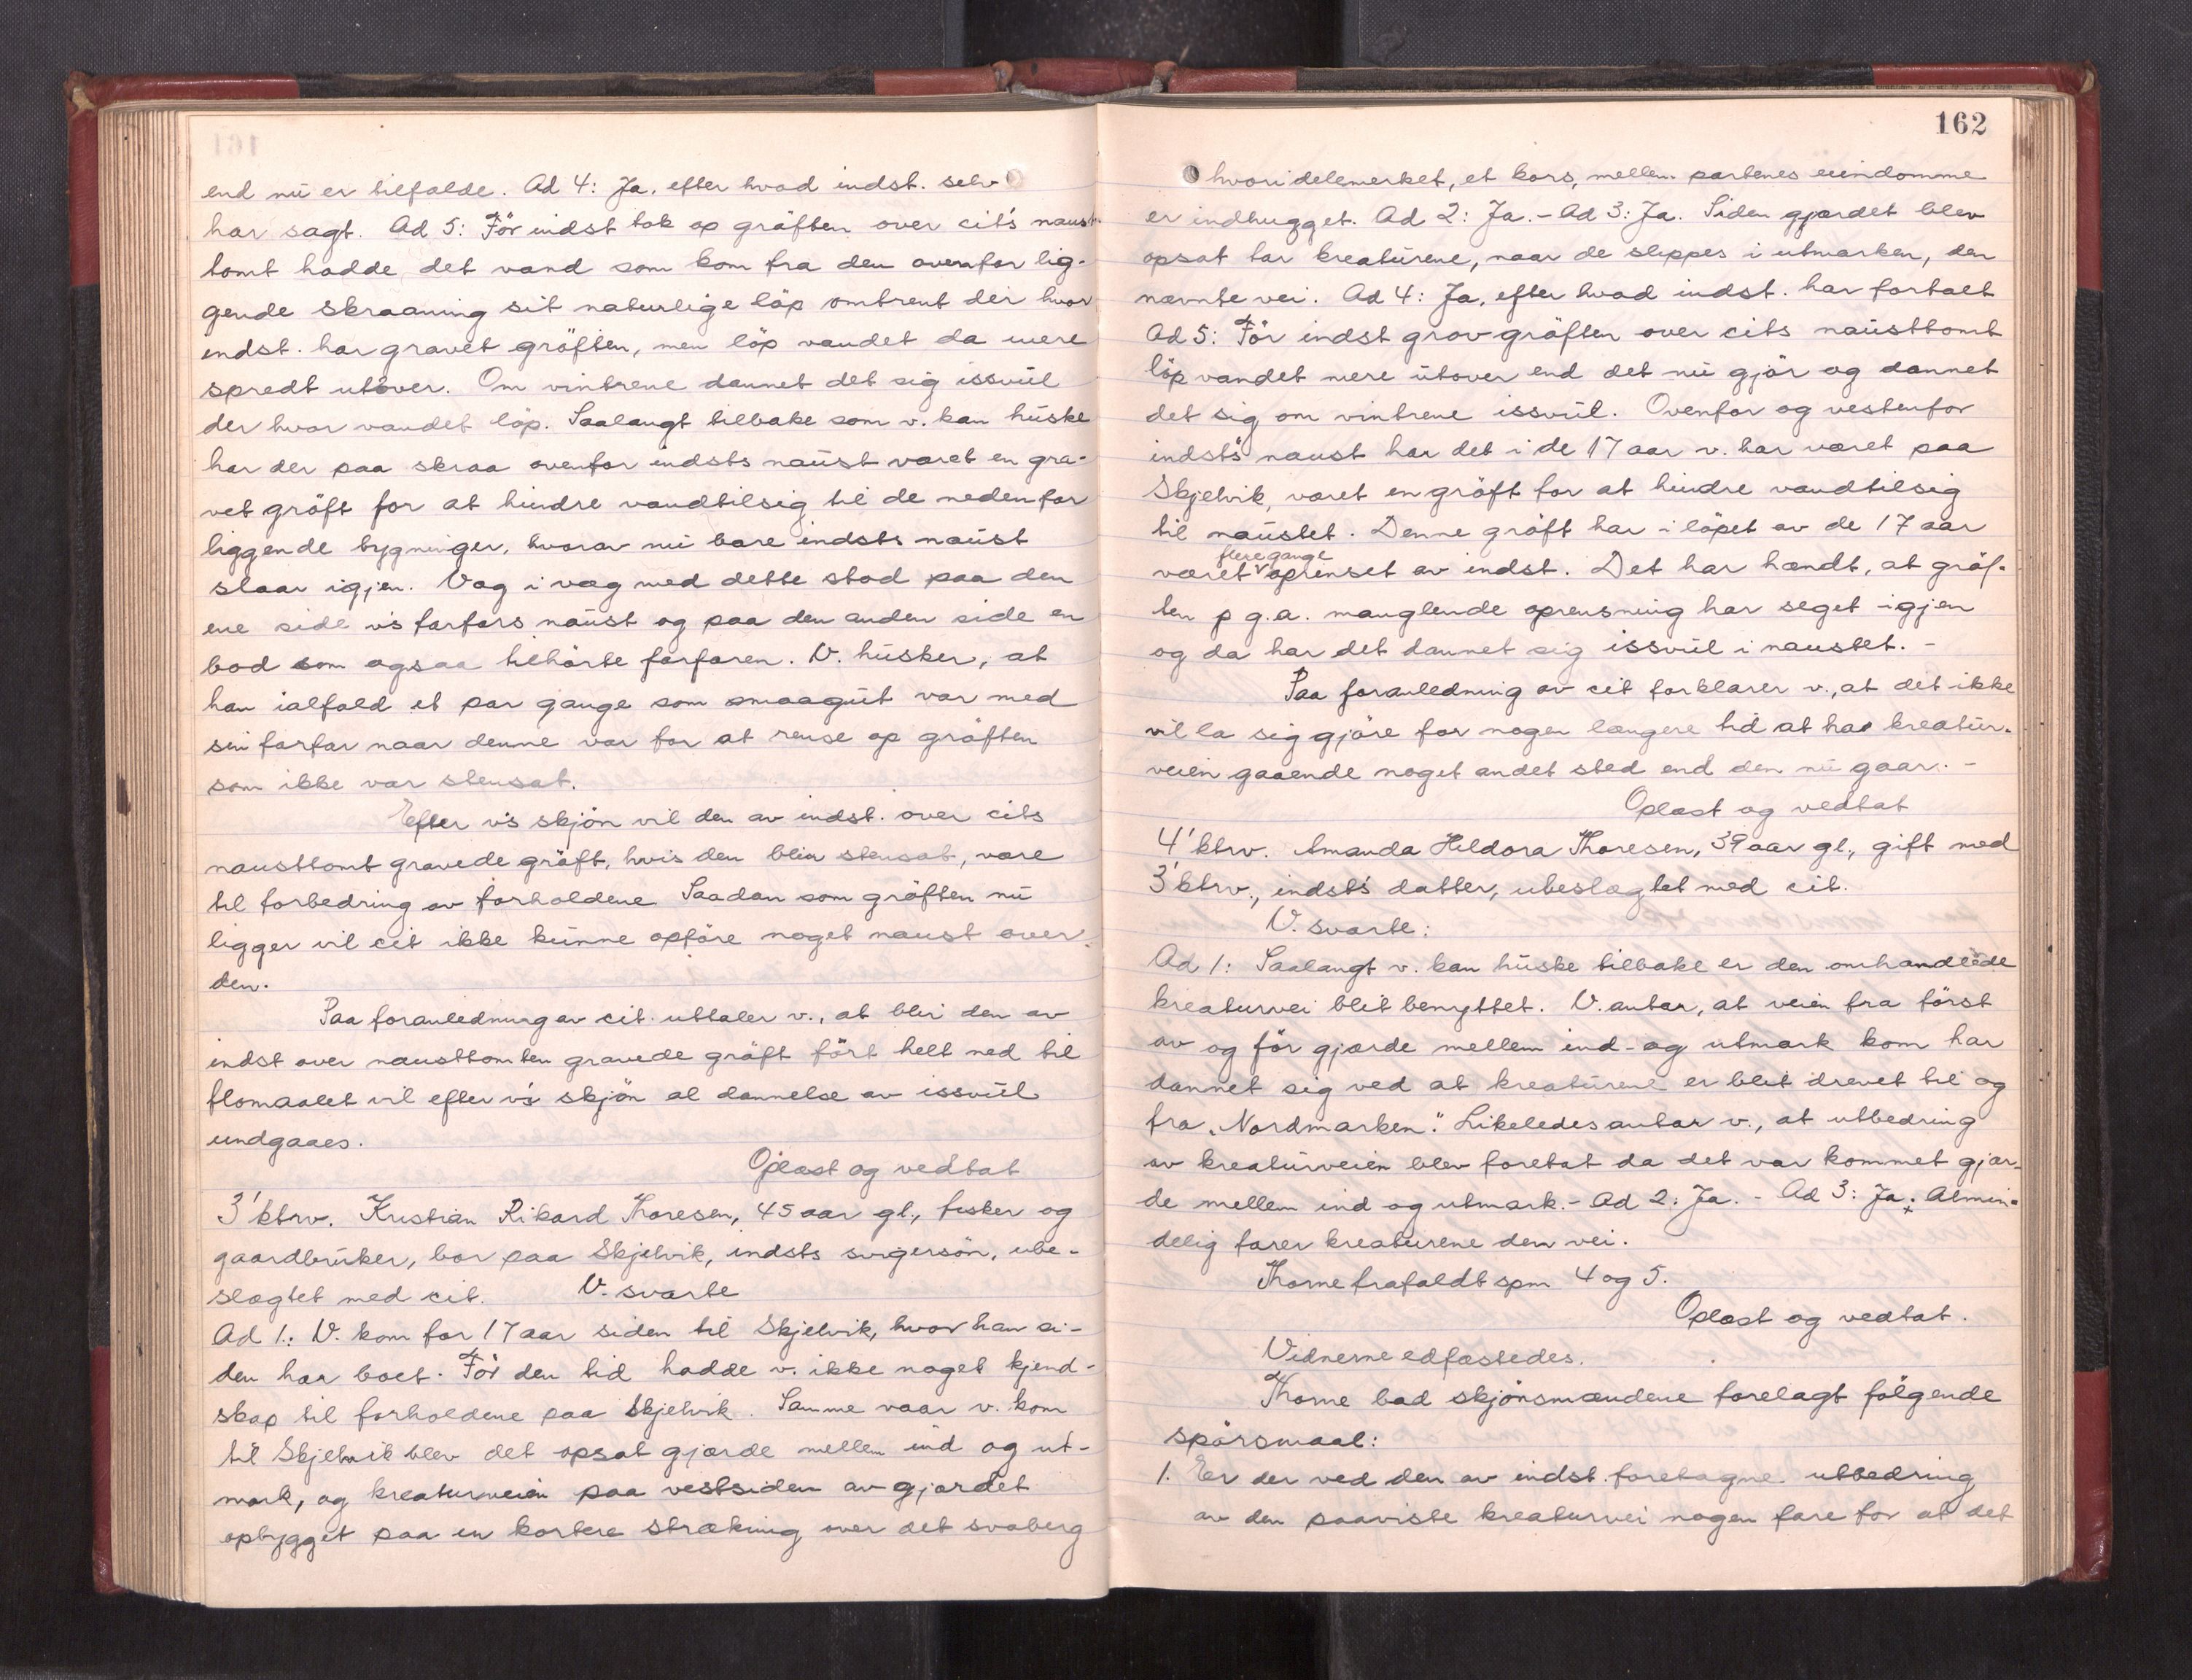 end nu er tilfalde. Ad 4: Ja, efter hvad indst. selv
har sagt. Ad 5: Før indst tok op grøften over cit's naust-
tomt hadde det vand som kom fra den ovenfor lig-
gende skraaning sit naturlige løp omtrent der hvor
indst. har gravet grøften, men løp vandet da mere
spredt utover. Om vintrene dannet det sig issvul
der hvor vandet løp. Saalangt tilbake som v. kan huske
har der paa skraa ovenfor indsts naust været en gra-
vet grøft for at hindre vandtilsig til de nedenfor
liggende bygninger, hvorav nu bare indsts naust
staar igjen. Væg i væg med dette stod paa den
ene side v's farfars naust og paa den anden side en
bod som ogsaa tilhørte farfaren. V. husker, at
han ialfald et par gange som smaagut var med
sin farfar naar denne var for at rense op grøften
som ikke var stensat.
Efter v's skjøn vil den av indst. over cits
nausttomt gravede grøft, hvis den blir stensat, være
til forbedring av forholdene. Saadan som grøften nu
ligger vil cit ikke kunne opføre noget naust over
den.
Paa foranledning av cit. uttaler v., at blir den av
indst over nausttomten gravede grøft ført helt ned til
flomaalet vil efter v's skjøn al dannelse av issvul
undgaaes.
Oplæst og vedtat
3' ktrv. Kristian Rikard Thoresen, 45 aar gl., fisker og
gaardbruker, bor paa Skjelvik, indsts svigersøn, ube-
slægtet med cit. V. svarte
Ad 1.: V. kom for 17 aar siden til Skjelvik, hvor han si-
den har boet. Før den tid hadde v. ikke noget kjend-
skap til forholdene paa Skjelvik. Samme vaar v. kom
til Skjelvik blev det opsat gjærde mellem ind og ut-
mark, og kreaturveien paa vestsiden av gjærdet
opbygget paa en kortere strækning over det svaberg
162
hvori delemerket, et kors, mellem partenes eiendomme
er indhugget. Ad 2: Ja. - Ad 3: Ja. Siden gjærdet blev
opsat tar kreaturene, naar de slippes i utmarken, den
nævnte vei. Ad 4: Ja, efter hvad indst. har fortalt
Ad 5: Før indst grov grøften over cits nausttomt
løp vandet mere utover end det nu gjør og dannet
det sig om vintrene issvul. Ovenfor og vestenfor
indst's naust har det i de 17 aar v. har været paa
Skjelvik, været en grøft for at hindre vandtilsig
til naustet. Denne grøft har i løpet av de 17 aar
flere gange
været oprenset av indst. Det har hændt, at grøf-
ten p g.a. manglende oprensning har seget igjen
og da har det dannet sig issvul i naustet. -
Paa foranledning av cit forklarer v., at det ikke
vil la sig gjøre for nogen længere tid at ha kreatur-
veien gaaende noget andet sted end den nu gaar. -
Oplæst og vedtat
4' ktrv. Amanda Heldora Thoresen, 39 aar gl., gift med
3' ktrv., indst's datter, ubeslægtet med cit.
V. svarte:
Ad 1: Saalangt v. kan huske tilbake er den omhandlede
kreaturvei blit benyttet. V. antar, at veien fra først
av og før gjærde mellem ind- og utmark kom har
dannet sig ved at kreaturene er blit drevet til og
fra "Nordmarken". Likeledes antar v., at utbedring
av kreaturveien blev foretat da det var kommet gjær-
de mellem ind og utmark. - Ad 2: Ja. - Ad 3: Ja. Almin-
delig farer kreaturene den vei.
Thorne frafaldt spm 4 og 5.
Oplæst og vedtat.
Vidnerne edfæstedes.
Thorne bad skjønsmændene forelagt følgende
spørsmaal:
1. Er der ved den av indst. foretagne utbedring
av den paaviste kreaturvei nogen fare for at det